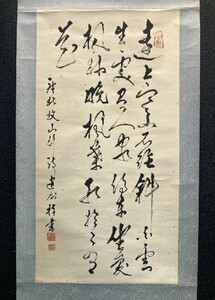 遠上寒山石徑斜白雲
生處有人家停車坐愛
楓林晚葉紅於二月
花
杜牧山行詩書